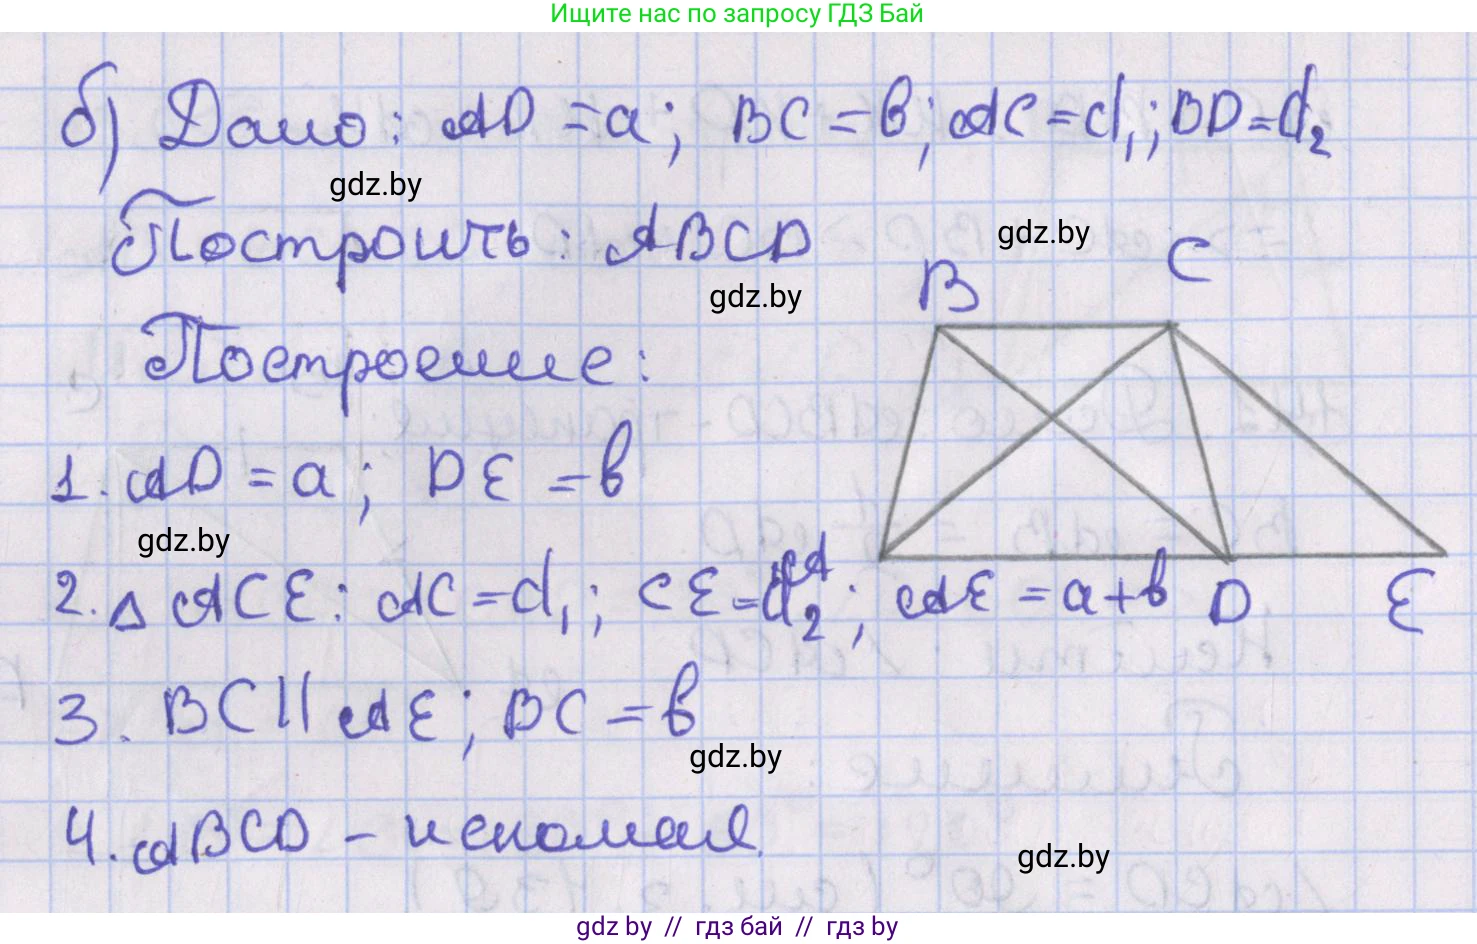 Ищите нас по запросу ГДЗ Бай
б) Дано: AD = a; BC = в; AC = d₁; BD = d₂
gdz.by
Построить: ABCD
gdz.by
gdz.by
B C
Построение:
1. AD = a; DE = в
gdz.by
A
2. △ ACE: AC = d₁; CE = d₂; AE = a+в
D E
3. BC || AE; BC = в
gdz.by
4. ABCD – искомая.
gdz.by
gdz by // гдз бай // гдз by